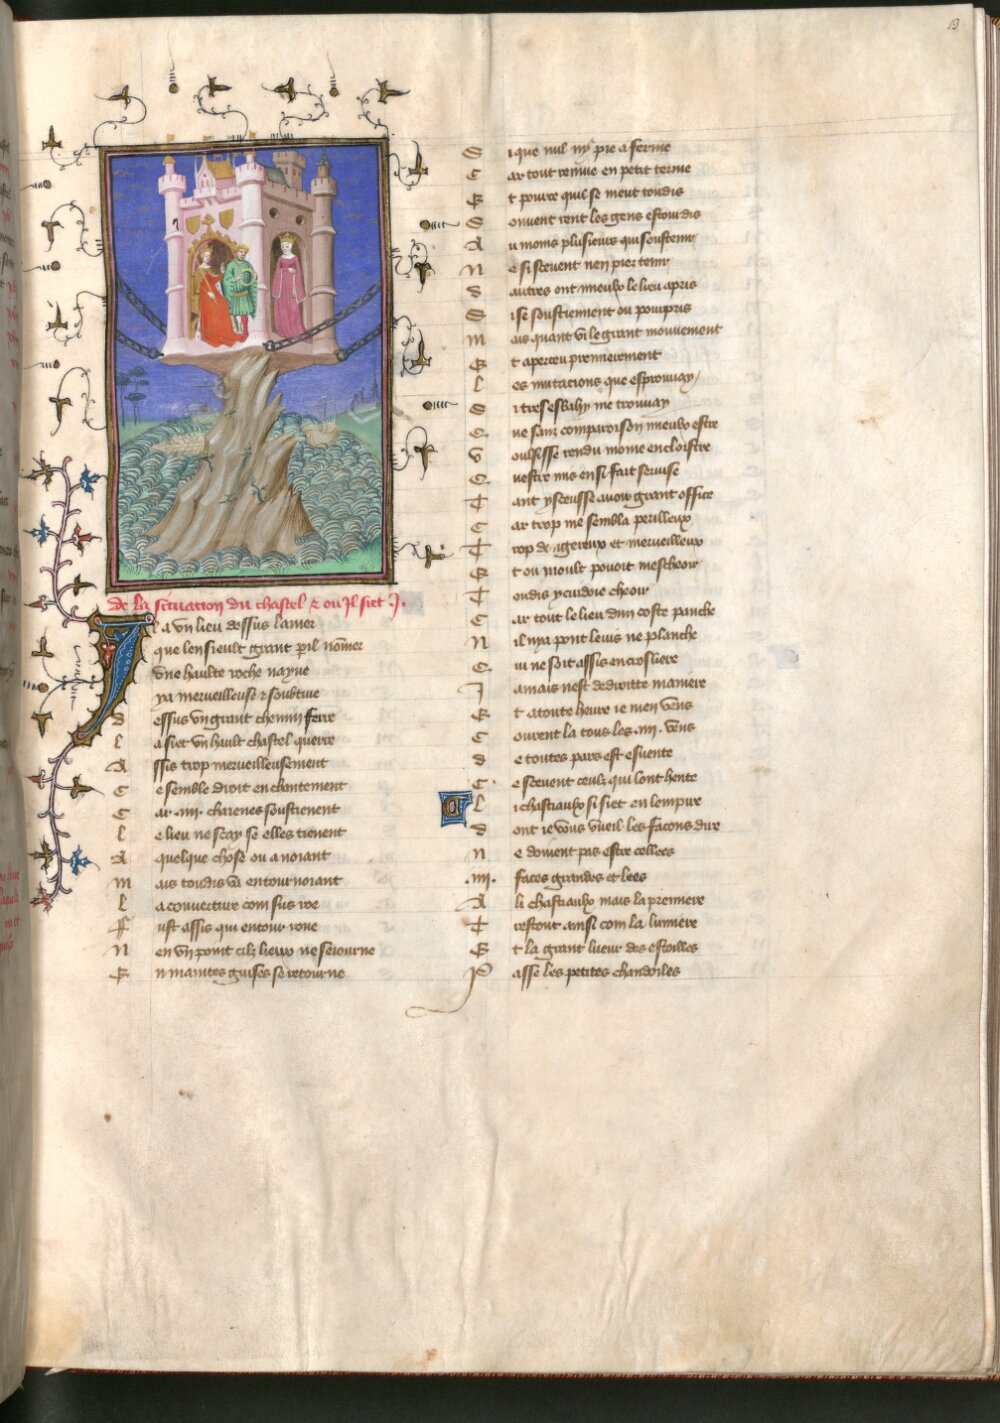 13
de la situacion du chastel et ou Il siet J.
Il a vn lieu dessus la mer
que len sieult grant peril nommer
vne haulte roche nayue
y a merueilleuse et soubtiue
dessus vn grant chemin ferre
la siet vn hault chastel querre
Assis trop merueilleusement
Ce semble droit enchantement
Car .iiij. chaienes soustienent
le lieu ne scay se elles tienent
A quelque chose ou a noiant
mais toudis va entournoiant
la couuerture com sus roe
ffust assis qui entour roue
n en vn point cilz lieux ne seiourne
En maintes guises se retourne
Si que nul ny pie a ferme
Car tout renuie en petit terme
Et pouure quil se meut toudis
Souuent rent les gens estourdis
Au moins plusieurs qui soustenir
ne si sceuent nen piez tenir
s autres ont mieulx le lieu apris
Si se soustiennent ou pourpris
mais quant vi le grant mouuement
Et aperceu premierement
les mutacions que esprouuay
Si tres esbahy me trouuay
Que sanz comparoison mieulx estre
Voulsisse rendu moine en cloistre
Questre mis en si fait seruise
Tant y sceusse auoir grant office
Car trop me sembla perilleux
Trop dangereux et merueilleux
Et ou moult pouoit mescheoir
Toudis y cuidoie cheoir
Car tout le lieu dun coste panche
n il nya pont leuis ne planche
Qui ne soit assis en crosliere
Jamais nest de droitte maniere
Et a toute heure ie men vens
Courent la tous les .iiij. vens
de toutes pars est esuente
Ce sceuent ceulz qui lont hente
Li chastiaulx si siet en lempire
dont ie vous vueil les facons dire
ne doiuent pas estre cellees
.iiij. faces grandes et lees
A li chastiaulx mais la premiere
Trestout ainsi com la lumiere
Et la grant lueur des estoilles
Passe les petites chandoiles